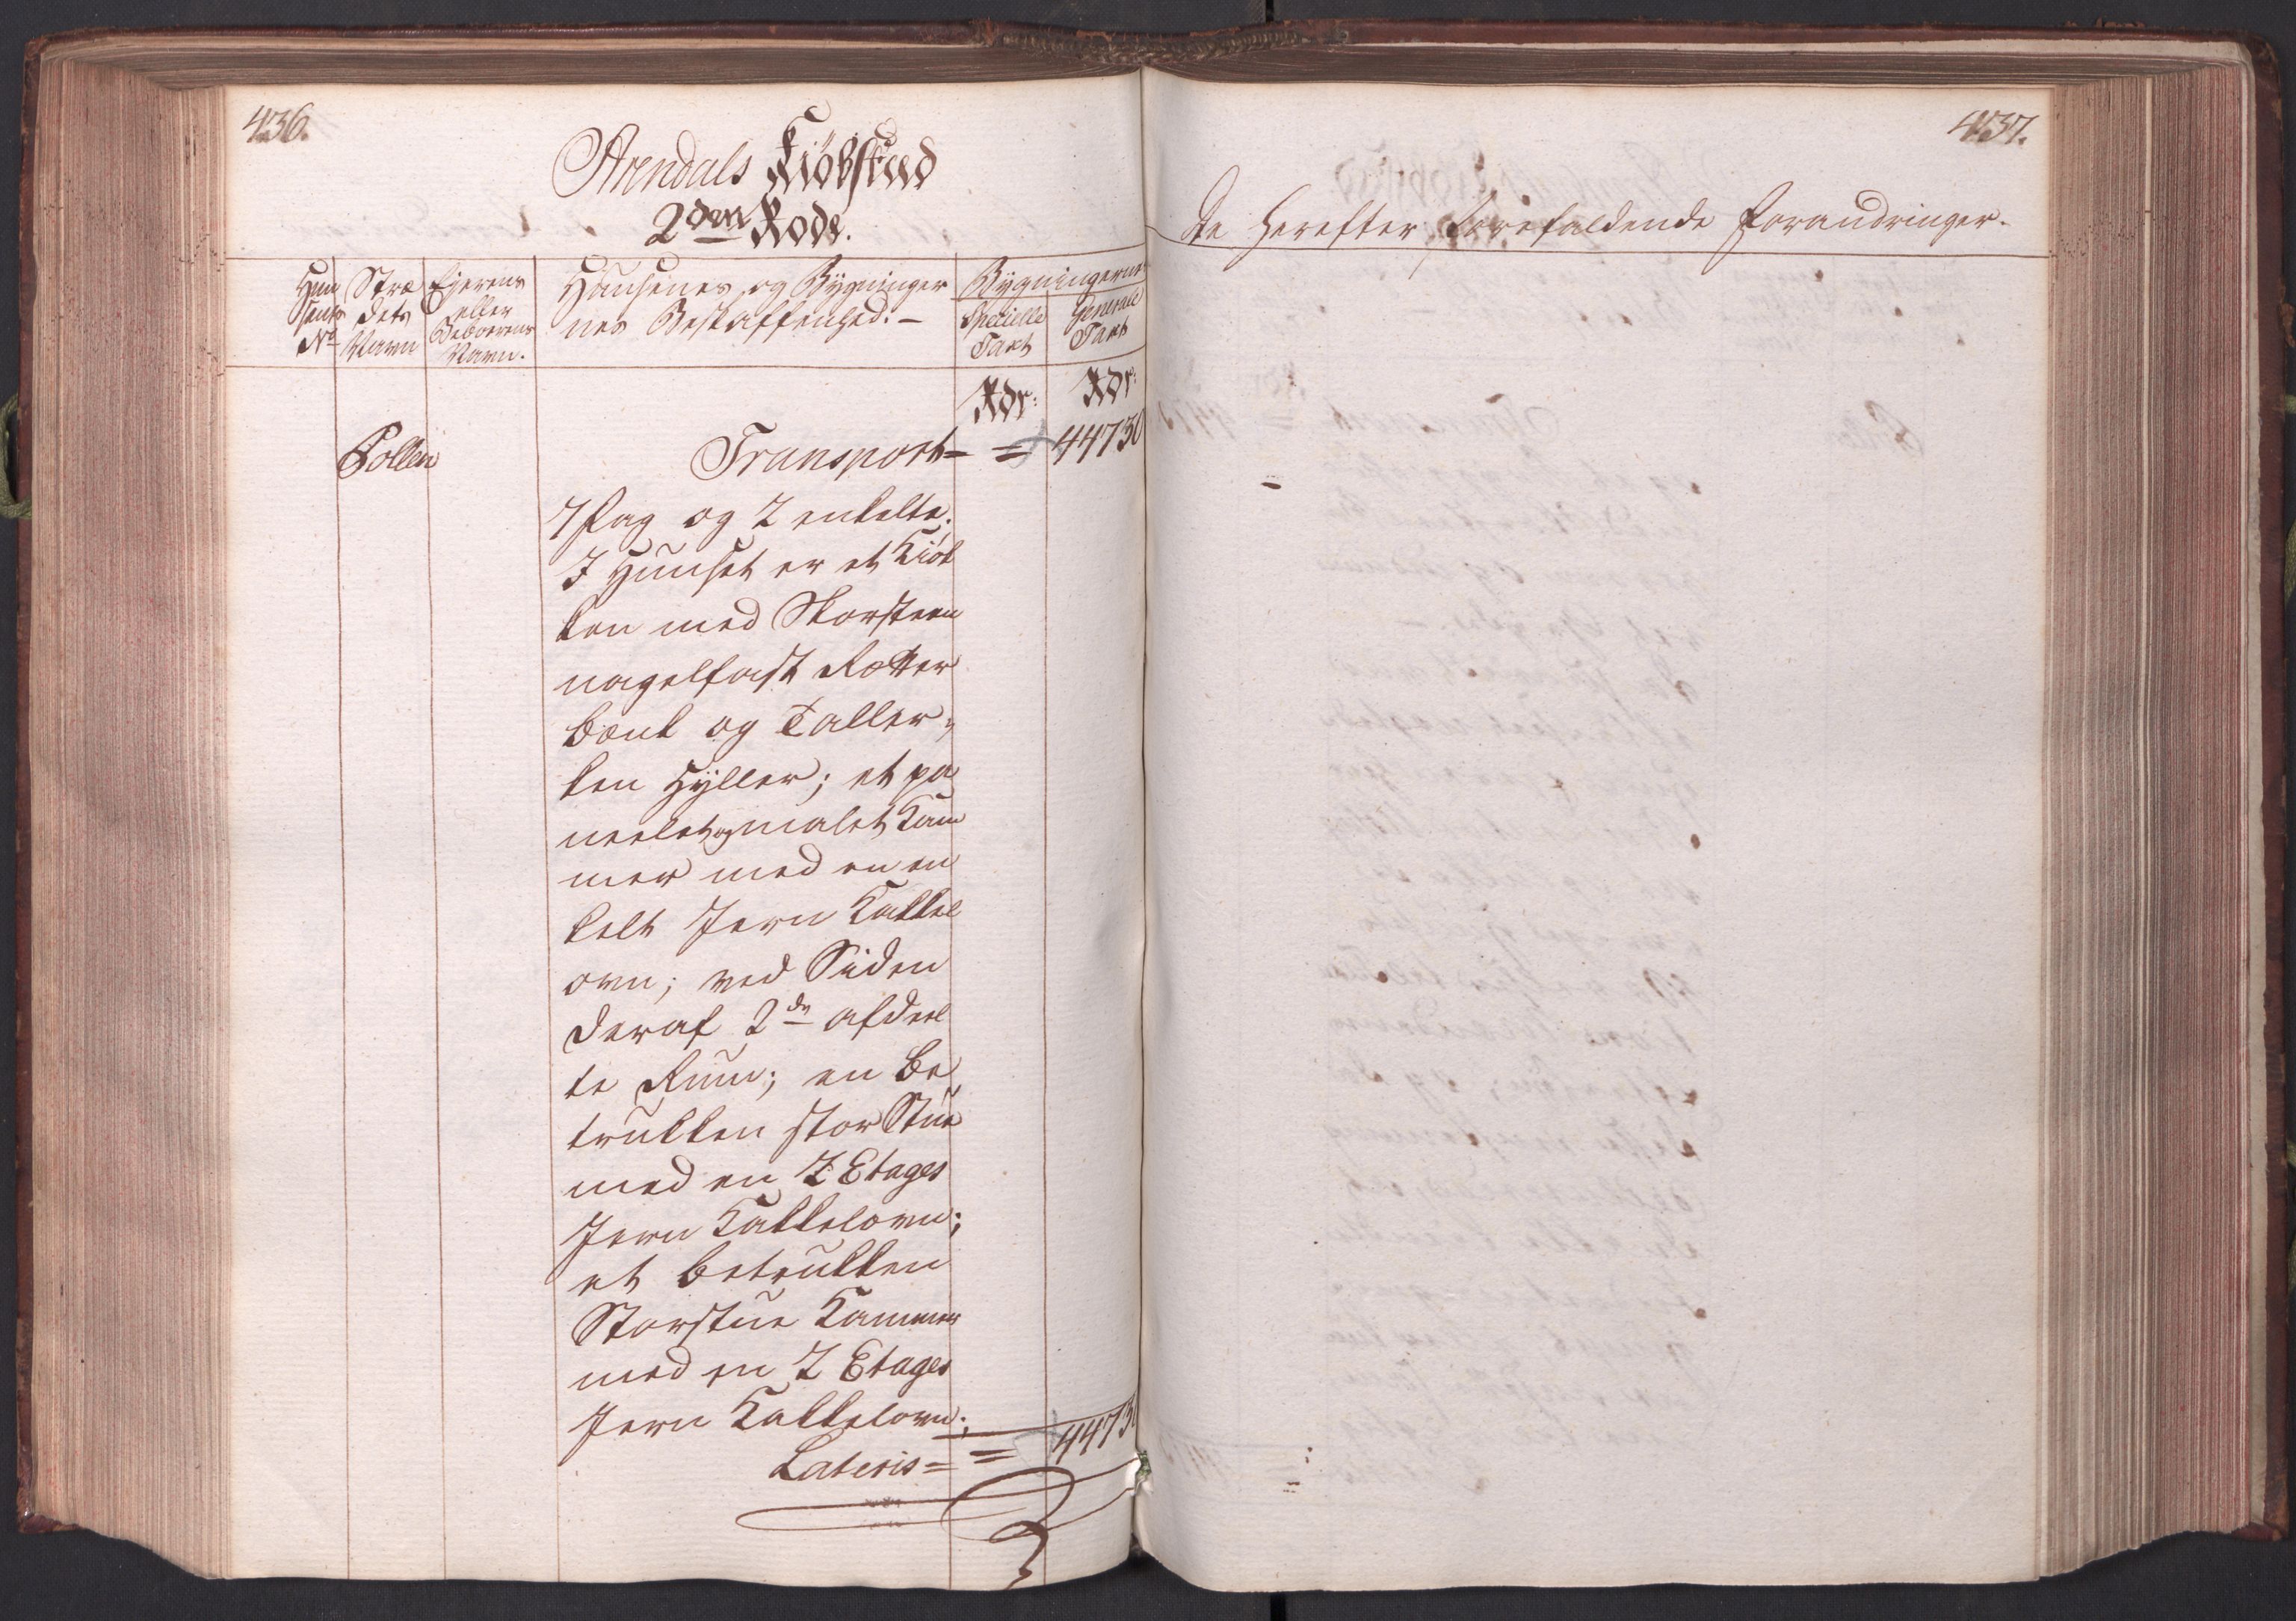 436.
Arendals Kiöbstæd
2den Rode.
Huu
sents
No
Stræ
dets
Navn
Ejerens
eller
Beboerens
Navn.
Huusenes og Bÿgninger
nes Beskaffenhed.-
Bÿgningerne
Specielle
Taxt
Generale
Taxt
Rdr:
Rdr:
Pollen
Transport = = 44750
7 Fag og 2 enkelte.
I Huuset er et Kiök
ken med Skorsteen
nagelfast Rætter
bænk og Taller,
ken Hÿller; et pa
neelet og malet Kam
mer med en en
kelt Jern Kakkel
ovn; ved Siden
deraf 2de afdeel
te Rum; en be
trükken stor Stüe
med en 2 Etages
Jern Kakkelovn;
et betrükken
Storstue Kammer
med en 2 Etages
Jern Kakkelovn;
Lateris = = 44750
437.
De herefter forefaldende Forandringer.